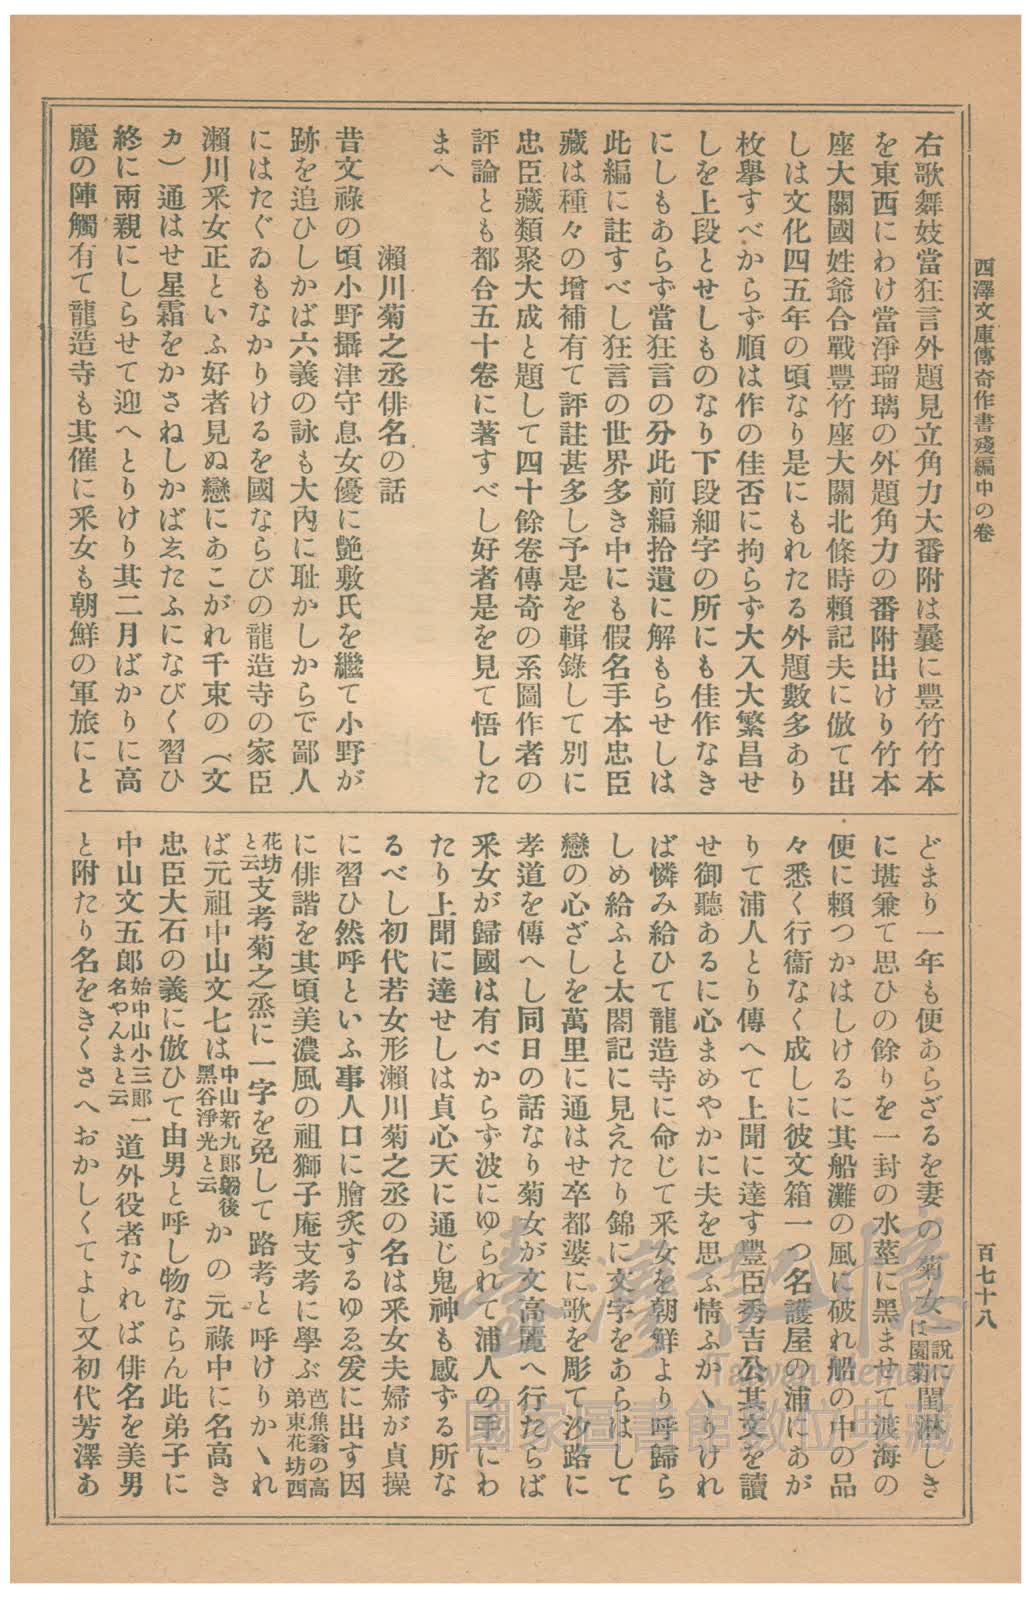 西澤文庫傳奇作書殘編中の卷
百七十八
右歌舞妓當狂言外題見立角力大番附は曩に豐竹竹本
を東西にわけ當淨瑠璃の外題角力の番附出けり竹本
座大關國姓爺合戰豐竹座大關北條時賴記夫に倣て出
しは文化四五年の頃なり是にもれたる外題數多あり
枚擧すべからず順は作の佳否に拘らず大入大繁昌せ
しを上段とせしものなり下段細字の所にも佳作なき
にしもあらず當狂言の分此前編拾遺に解もらせしは
此編に註すべし狂言の世界多き中にも假名手本忠臣
藏は種々の增補有て評註甚多し予是を輯錄して別に
忠臣藏類聚大成と題して四十餘卷傳奇の系圖作者の
評論とも都合五十卷に著すべし好者是を見て悟した
まへ
瀨川菊之丞俳名の話
昔文祿の頃小野攝津守息女優に艷敷氏を繼て小野が
跡を追ひしかば六義の詠も大內に耻かしからで鄙人
にはたぐゐもなかりけるを國ならびの龍造寺の家臣
瀨川釆女正といふ好者見ぬ戀にあこがれ千束の（文
カ）通はせ星霜をかさねしかばゑたふになびく習ひ
終に兩親にしらせて迎へとりけり其二月ばかりに高
麗の陣觸有て龍造寺も其催に釆女も朝鮮の軍旅にと
どまり一年も便あらざるを妻の菊女一說に園菊は閨淋しき
に堪兼て思ひの餘りを一封の水莖に黑ませて渡海の
便に賴つかはしけるに其船灘の風に破れ船の中の品
々悉く行衞なく成しに彼文箱一つ名護屋の浦にあが
りて浦人とり傳へて上聞に達す豐臣秀吉公其文を讀
せ御聽あるに心まめやかに夫を思ふ情ふかゝりけれ
ば憐み給ひて龍造寺に命じて釆女を朝鮮より呼歸ら
しめ給ふと太閤記に見えたり錦に文字をあらはして
戀の心ざしを萬里に通はせ卒都婆に歌を彫て汐路に
孝道を傳へし同日の話なり菊女が文高麗へ行たらば
釆女が歸國は有べからず波にゆられて浦人の手にわ
たり上聞に達せしは貞心天に通じ鬼神も感ずる所な
るべし初代若女形瀨川菊之丞の名は釆女夫婦が貞操
に習ひ然呼といふ事人口に膾炙するゆゑ爰に出す因
に俳諧を其頃美濃風の祖獅子庵支考に學ぶ芭蕉翁の高弟東花坊西
花坊と云支考菊之丞に一字を免して路考と呼けりかゝれ
ば元祖中山文七は中山新九郎躮後黑谷淨光と云かの元祿中に名高き
忠臣大石の義に倣ひて由男と呼し物ならん此弟子に
中山文五郎始中山小三郎一名やんまと云道外役者なれば俳名を美男
と附たり名をきくさへおかしくてよし又初代芳澤あ
臺灣記憶
Taiwan Memory
國家圖書館數位典藏